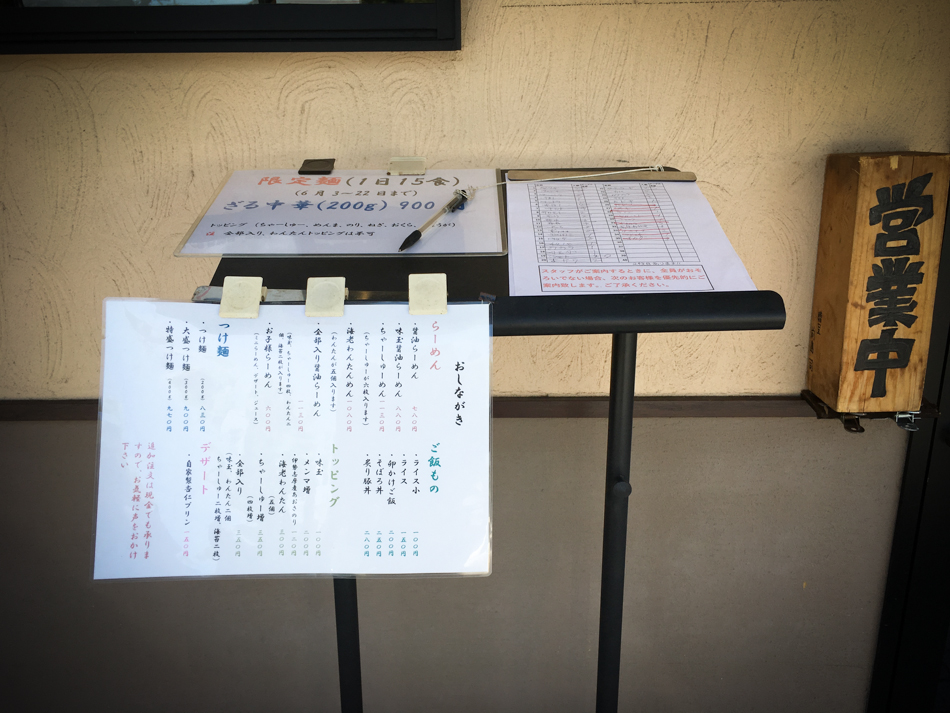 限定麺(1日15食)
(6月3〜22日まで)
ざる中華(200g) 900
トッピング (ちゃーしゅー、めんま、のり、ねぎ、おくら、
全部入り、わんたんトッピングは不可
スタッフがご案内するときに、全員がおそ
ろいでない場合、次のお客様を優先的にご
案内致します。ご了承ください。
営業中
おしながき
らーめん
・醤油らーめん 七八〇円
・味玉醤油らーめん 八八〇円
・ちゃーしゅーめん 一一三〇円
(ちゃーしゅーが六枚入ります)
・海老わんたんめん 一〇八〇円
(わんたんが五個入ります)
・全部入り醤油らーめん 一一三〇円
・お子様らーめん 六〇〇円
(ミニらーめん、デザート、ジュース)
つけ麺
・つけ麺 (200g) 八三〇円
・大盛つけ麺 (300g) 九〇〇円
・特盛つけ麺 (400g) 九七〇円
ご飯もの
・ライス小 一〇〇円
・ライス 一五〇円
・卵かけご飯 二〇〇円
・そぼろ丼 二五〇円
・炙り豚丼 二八〇円
トッピング
・味玉 一〇〇円
・メンマ増 二〇〇円
・海老わんたん (五個) 三〇〇円
・ちゃーしゅー増 (四枚増) 三五〇円
・全部入り 三五〇円
(味玉、わんたん二個
ちゃーしゅー二枚増、海苔二枚)
デザート
・自家製杏仁プリン 一五〇円
追加注文は現金でも承りま
すので、お気軽に声をおかけ
下さい